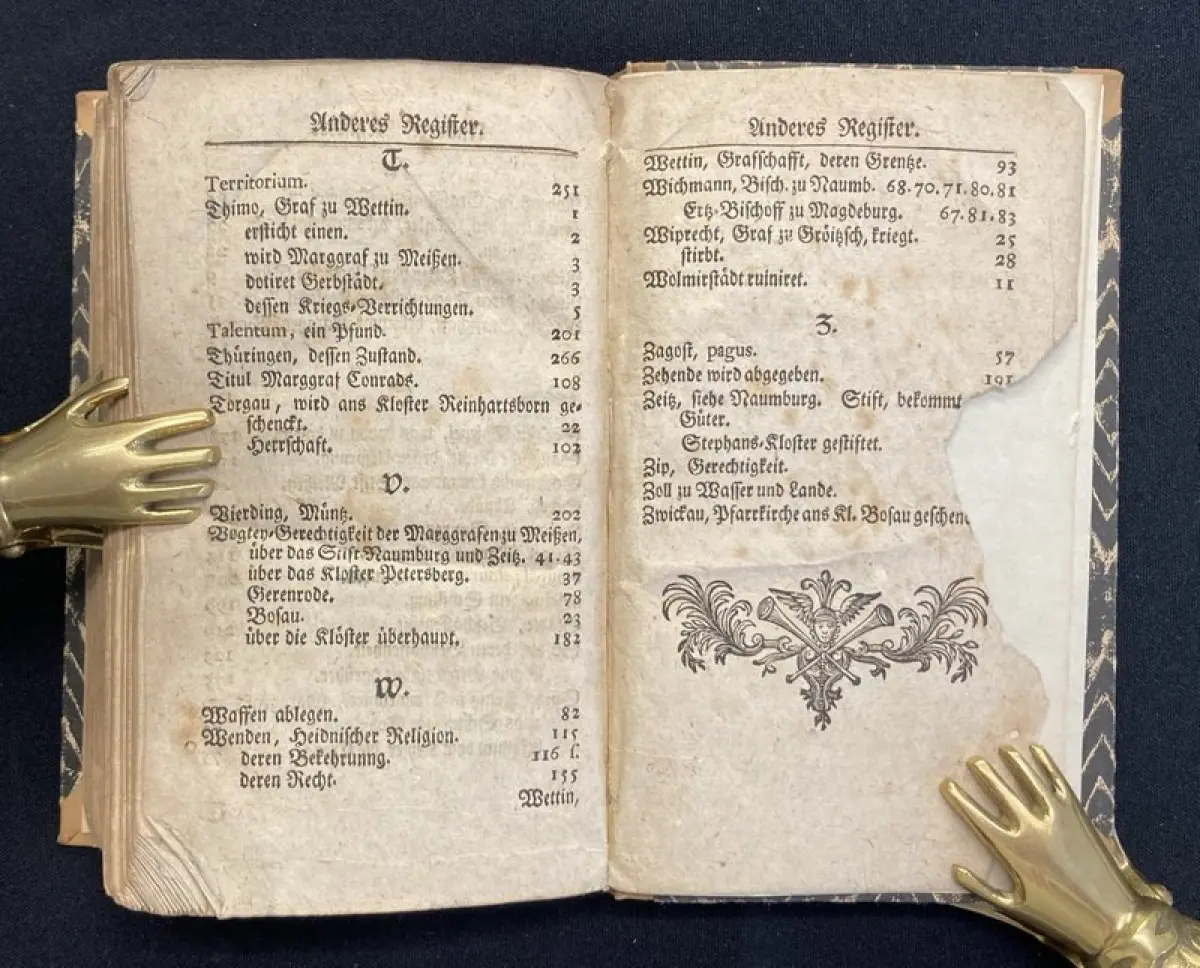 Anderes Register.
T.
Territorium. 251
Thimo, Graf zu Wettin. 1
ersticht einen. 2
wird Marggraf zu Meißen. 3
dotiret Gerbstädt. 3
dessen Kriegs-Verrichtungen. 5
Talentum, ein Pfund. 201
Thüringen, dessen Zustand. 266
Titul Marggraf Conrads. 108
Torgau, wird ans Kloster Reinhartsborn ge-
schenckt. 22
Herrschaft. 102
V.
Vierding, Müntz. 202
Vogtey-Gerechtigkeit der Marggrafen zu Meißen,
über das Stift Naumburg und Zeitz. 41.43
über das Kloster Petersberg. 37
Gerenrode. 78
Bosau. 23
über die Klöster überhaupt. 182
W.
Waffen ablegen. 82
Wenden, Heidnischer Religion. 115
deren Bekehrunng. 116 f.
deren Recht. 155
Wettin,
Anderes Register.
Wettin, Grafschafft, deren Grentze. 93
Wichmann, Bisch. zu Naumb. 68.70.71.80.81
Ertz-Bischoff zu Magdeburg. 67.81.83
Wiprecht, Graf zu Gröitzsch, kriegt. 25
stirbt. 28
Wolmirstädt ruiniret. 11
Z.
Zagost, pagus. 57
Zehende wird abgegeben. 191
Zeitz, siehe Naumburg. Stift, bekommt
Güter.
Stephans-Kloster gestiftet.
Zip, Gerechtigkeit.
Zoll zu Wasser und Lande.
Zwickau, Pfarrkirche ans Kl. Bosau geschen